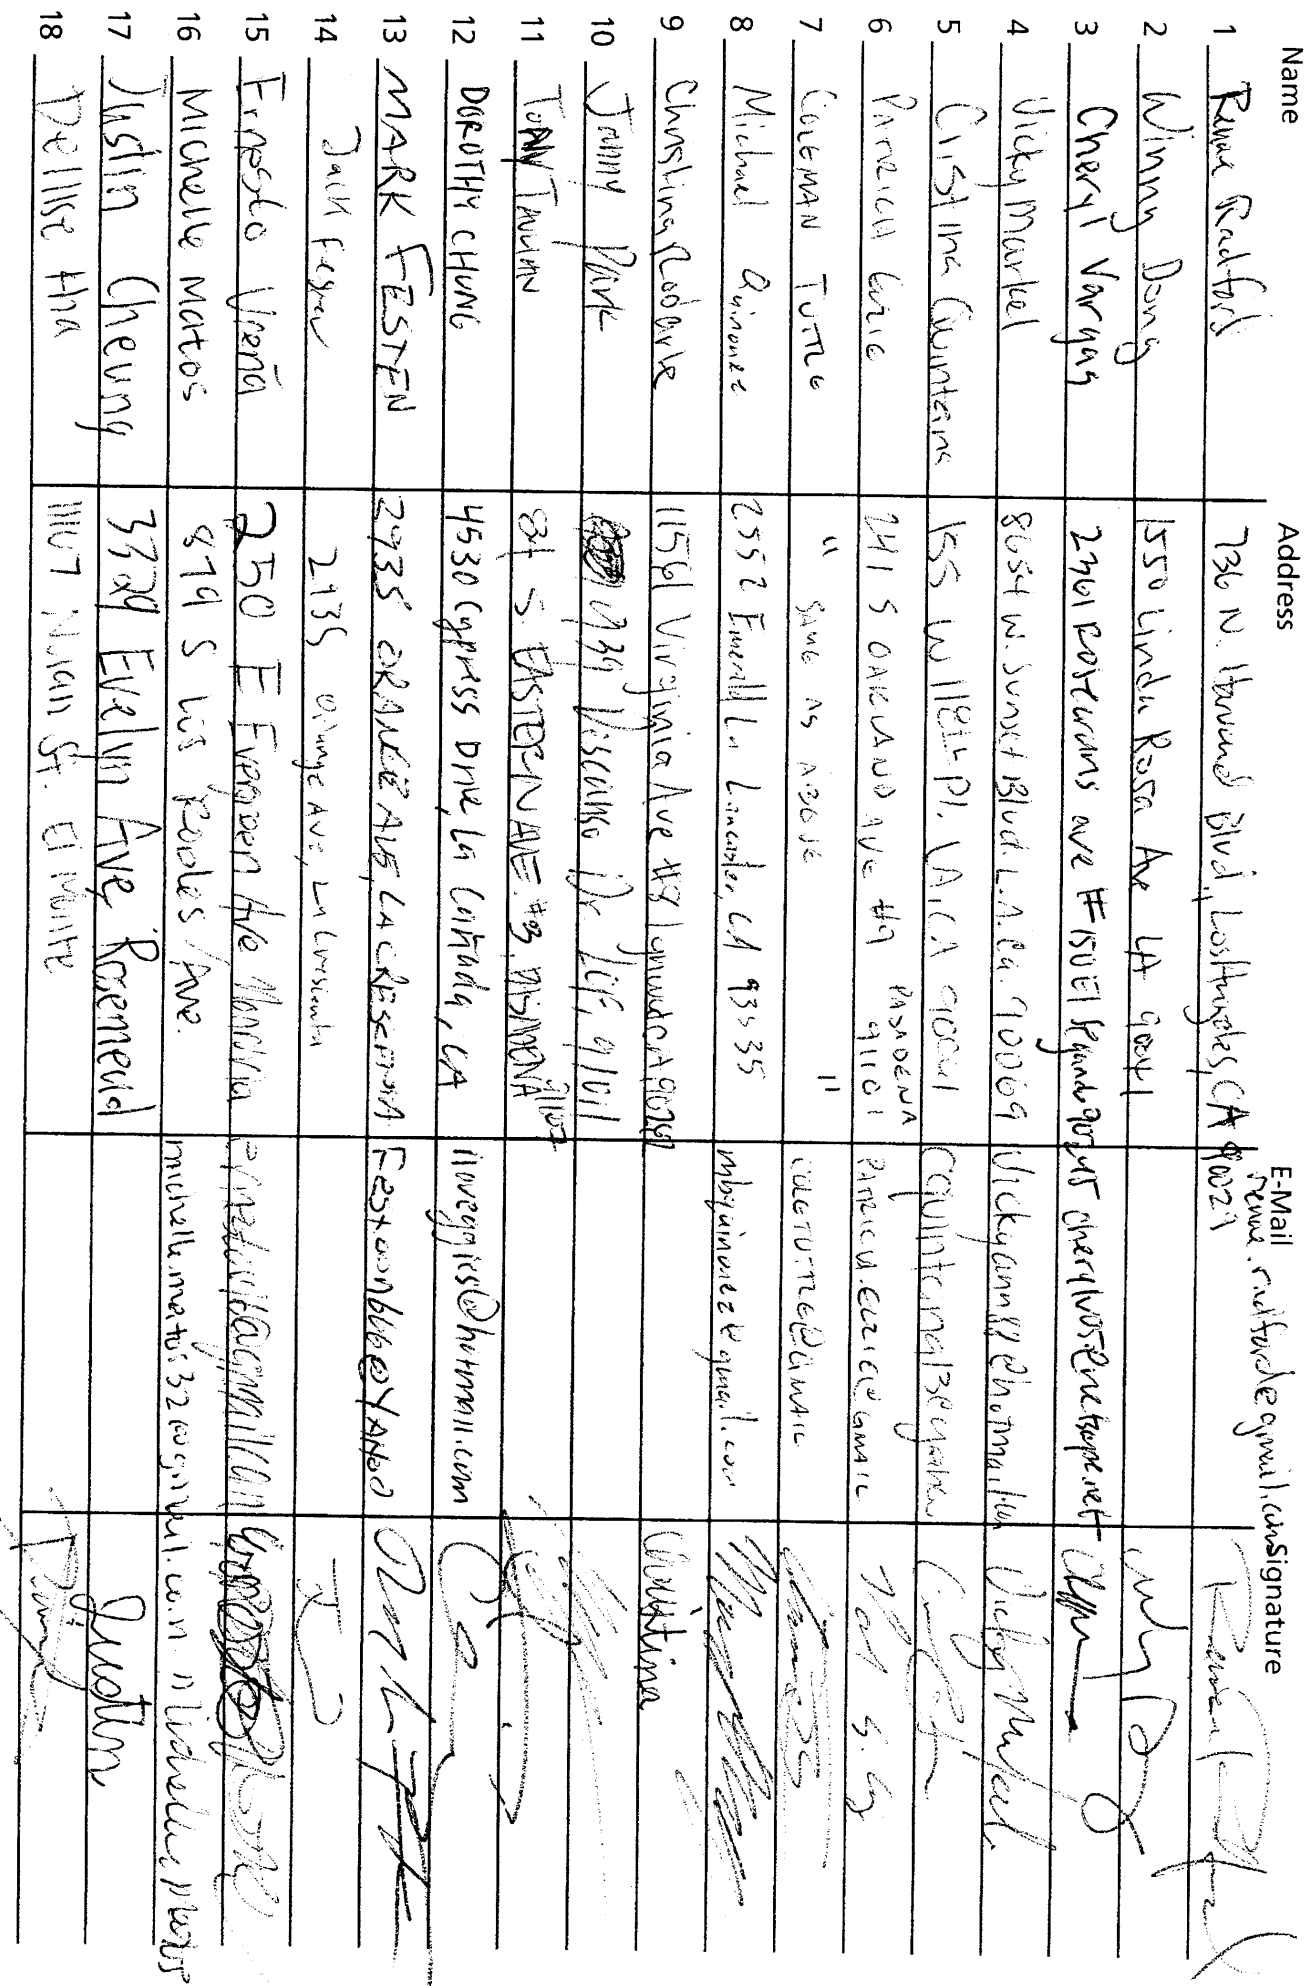 Name Address E-Mail Signature
1 Renae Radford 736 N. Harvard Blvd, Los Angeles, CA 90029 renae.radford@gmail.com
2 Winny Dong 1550 Linda Rosa Ave LA 90041
3 Cheryl Vargas 2361 Rosecrans ave #150 El Segundo 90245
4 Vicky Markel 8654 W. Sunset Blvd. L.A. Ca. 90069 Vickyann88@hotmail.com Vicky Markel
5 Cristina Quintana 155 W 118th Pl. LA, CA
6 PATRICIA 241 S OAKLAND AVE #9 PASADENA 91101
7 COLEMAN TUTTLE " SAME AS ABOVE " COLETUTTLE@GMAIL
8 Michael Quinonez 2552 Emerald Ln Lancaster, CA 93535 mbquinonez@gmail.com
9 Christina Rodarte 11561 Virginia Ave #8 Lynwood CA 90262 Christina
10 Jonny Park Descanso Dr LCF, 91011
11 TONY 84 S. EASTERN AVE. #3, PASADENA 91107
12 DOROTHY CHUNG 4530 Cypress Drive, La Cañada, CA iloveggies@hotmail.com
13 MARK FESTEN 2935 ORANGE AVE, LA CRESCENTA
14 Jack 2935 Orange Ave, La Crescenta
15 Ernesto Ureña 250 E Evergreen Ave Monrovia
16 Michelle Matos 879 S Los Robles Ave. michelle.matos32@gmail.com Michelle Matos
17 Justin Cheung 3329 Evelyn Ave, Rosemead Justin
18 St. El Monte